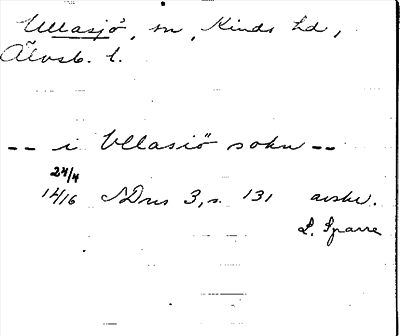 Ullasjö, sn, Kinds hd,
Älvsb. l.
-- i Vllasiö sokn --
24/4
1416 SDns 3, s. 131 avskr.
L. Sparre